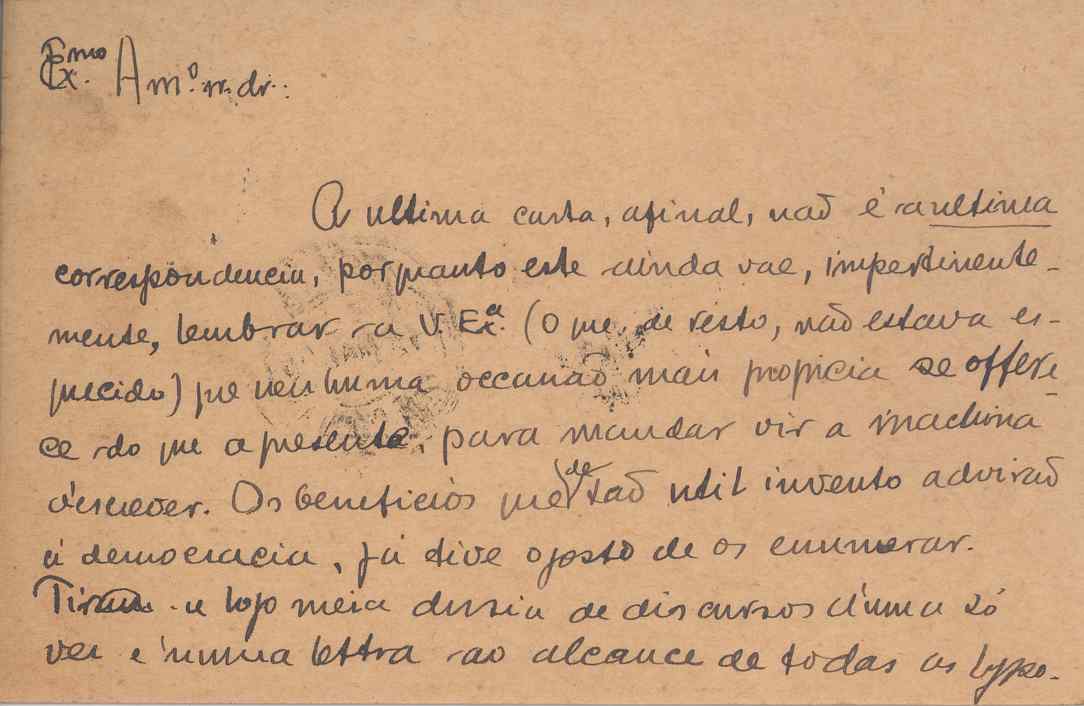 Exmo. Amº. e dr.:
A ultima carta, afinal, não é a ultima
correspondencia, porquanto este ainda vae, impertinente-
mente, lembrar a V. Ex.ª (o que, de resto, não estava es-
quecido) que nenhuma occasião mais propicia se offere-
ce do que a presente, para mandar vir a machina
d'escrever. Os beneficios que de tão util invento advirão
á democracia, já tive o gosto de os enumerar.
Tiram-se logo meia dusia de discursos d'uma só
vez e n'uma lettra ao alcance de todas as typo-